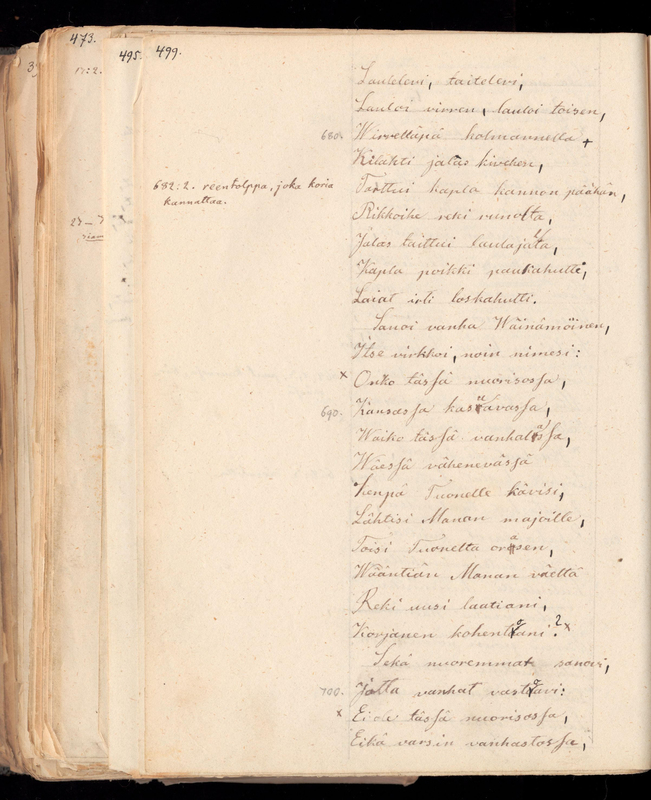 473.
495.
499.
Lauleleıvi, taitelevi,
Lauloi virren, lauloi toisen,
680. Wirrettäpä kolmannella +
Kilahti jalas kivehen,
682:2. reentolppa, joka koria
kannattaa.
Tarttui kapla kannon päähän,
Rikkoihe reki runolta,
Jalas taittui laulajalta,
Kapla poikki paukahutti,
Laiat irti loskahutti.
Sanoi vanha Wäinämöinen,
Itse virkkoi, noin nimesi:
x Onko tässä nuorisossa,
690. Kansassa kasuavassa,
Waiko tässä vanhalassa,
Wäessä vähenevässä
Kenpä Tuonelle kävisi,
Lähtisi Manan majoille,
Toisi Tuonelta oräsen,
Wääntiän Manan väeltä
Reki uusi laatiani,
Korjanen kohentoani? x
Sekä nuoremmat sanovi,
700. Jotta vanhat vastoavi:
x Ei ole tässä nuorisossa,
Eikä varsin vanhastossa,